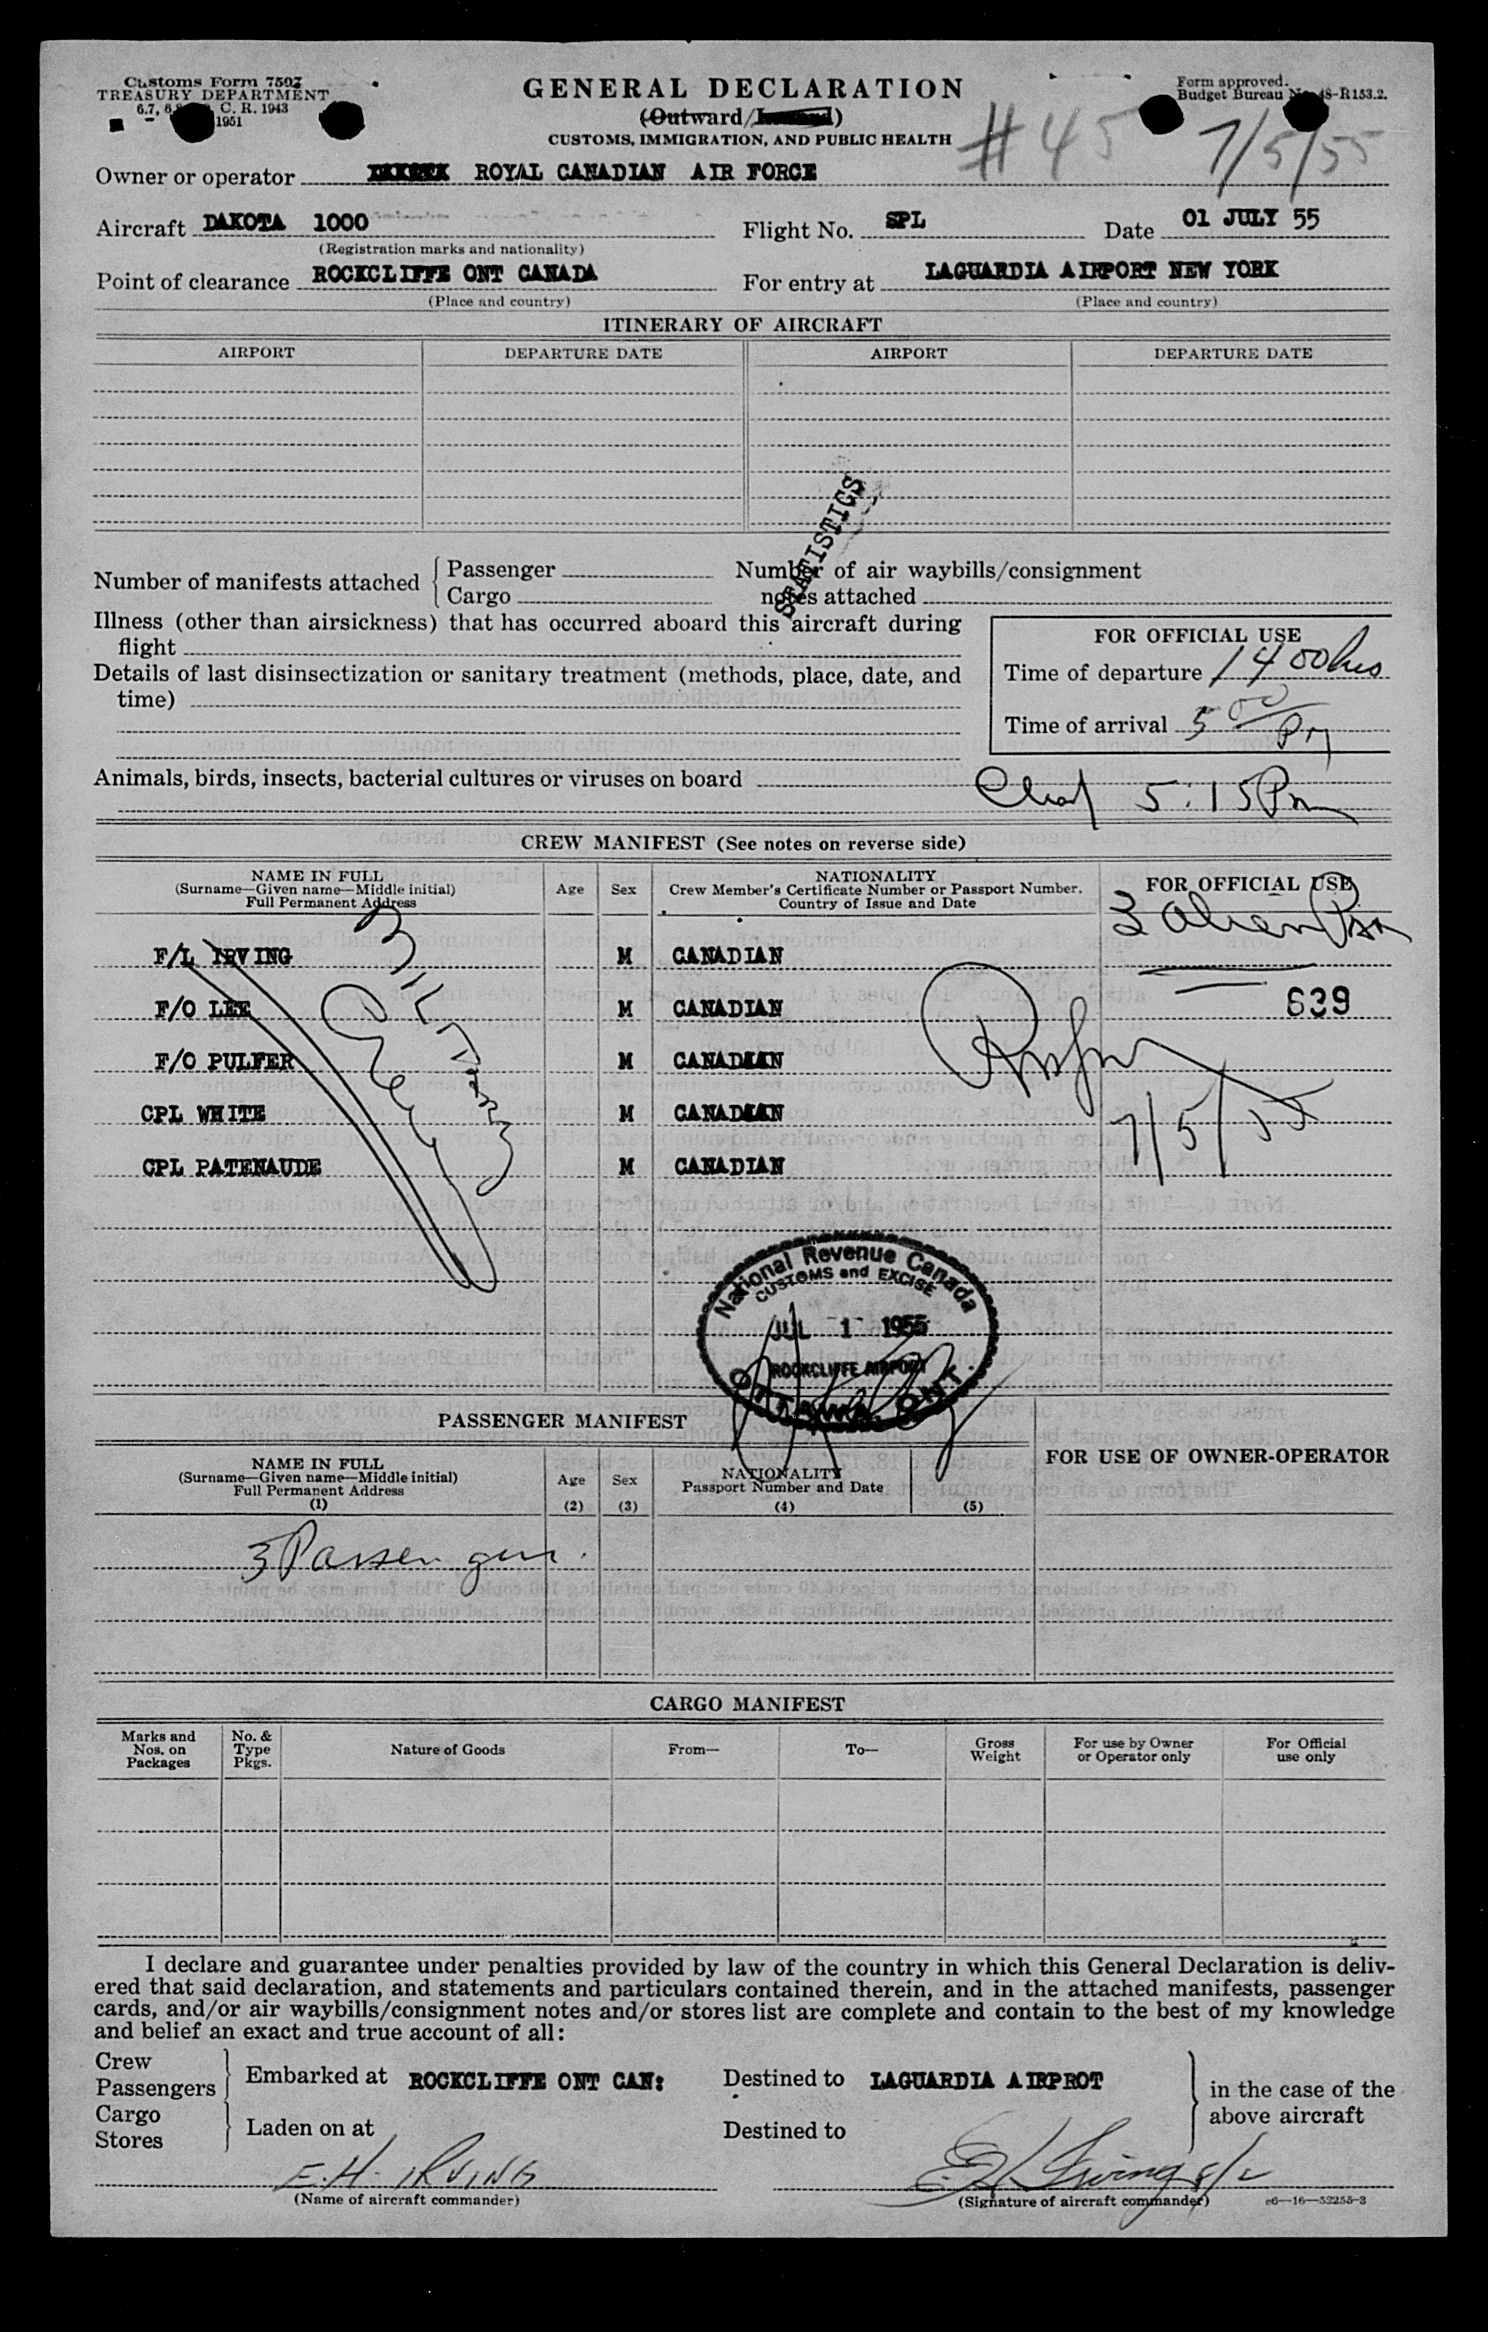 Customs Form 7507
TREASURY DEPARTMENT
6.7, C. R. 1943
1951
GENERAL DECLARATION
(Outward/
CUSTOMS, IMMIGRATION, AND PUBLIC HEALTH
Form approved.
Budget Bureau No. 48-R153.2.
#45
7/5/55
Owner or operator ROYAL CANADIAN AIR FORCE
Aircraft DAKOTA 1000 Flight No. SPL Date 01 JULY 55
(Registration marks and nationality)
Point of clearance ROCKCLIFFE ONT CANADA For entry at LAGUARDIA AIRPORT NEW YORK
(Place and country) (Place and country)
ITINERARY OF AIRCRAFT
AIRPORT DEPARTURE DATE AIRPORT DEPARTURE DATE
STATISTICS
Number of manifests attached { Passenger Number of air waybills/consignment
Cargo notes attached
Illness (other than airsickness) that has occurred aboard this aircraft during
flight
Details of last disinsectization or sanitary treatment (methods, place, date, and
time)
FOR OFFICIAL USE
Time of departure 1400hrs
Time of arrival 5 00/PM
Animals, birds, insects, bacterial cultures or viruses on board
5:15 Pm
CREW MANIFEST (See notes on reverse side)
NAME IN FULL
(Surname—Given name—Middle initial)
Full Permanent Address
Age Sex
NATIONALITY
Crew Member's Certificate Number or Passport Number.
Country of Issue and Date
FOR OFFICIAL USE
3 alien
F/L IRVING M CANADIAN
F/O LEE M CANADIAN 639
F/O PULFER M CANADIAN
CPL WHITE M CANADIAN
7/5/55
CPL PATENAUDE M CANADIAN
National Revenue Canada
CUSTOMS and EXCISE
JUL 1 1955
ROCKCLIFFE AIRPORT
OTTAWA, ONT.
PASSENGER MANIFEST
NAME IN FULL
(Surname—Given name—Middle initial)
Full Permanent Address
(1)
Age
(2)
Sex
(3)
NATIONALITY
Passport Number and Date
(4) (5)
FOR USE OF OWNER-OPERATOR
3 Passengers.
CARGO MANIFEST
Marks and
Nos. on
Packages
No. &
Type
Pkgs.
Nature of Goods From— To—
Gross
Weight
For use by Owner
or Operator only
For Official
use only
I declare and guarantee under penalties provided by law of the country in which this General Declaration is deliv-
ered that said declaration, and statements and particulars contained therein, and in the attached manifests, passenger
cards, and/or air waybills/consignment notes and/or stores list are complete and contain to the best of my knowledge
and belief an exact and true account of all:
Crew
Passengers } Embarked at ROCKCLIFFE ONT CAN: Destined to LAGUARDIA AIRPROT
in the case of the
above aircraft
Cargo
Stores } Laden on at Destined to
E.H. IRVING E H Irving F/L
(Name of aircraft commander) (Signature of aircraft commander) c6—16—52255-3